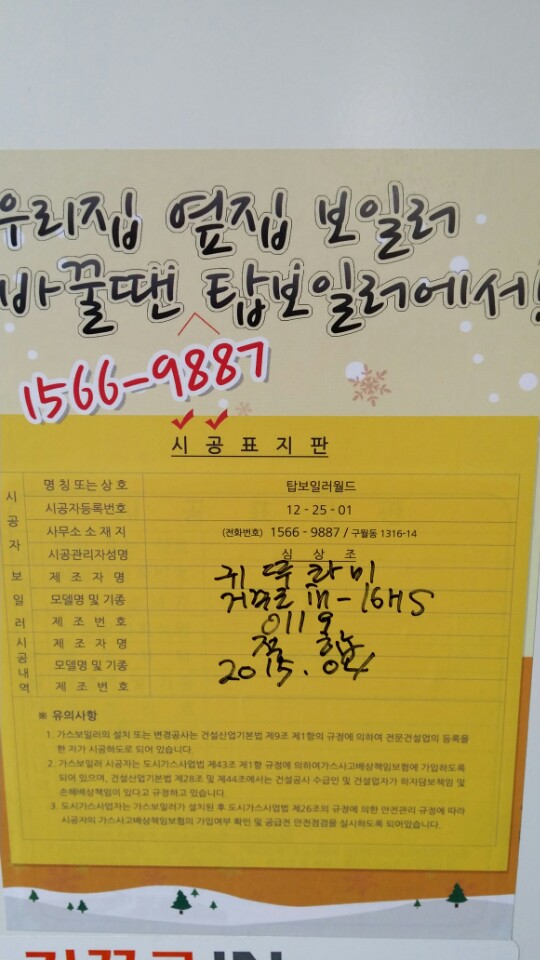 우리집 옆집 보일러
바꿀땐 탑보일러에서!
1566-9887
시 공 표 지 판
시 공 자
명 칭 또는 상 호 탑보일러월드
시공자등록번호 12 - 25 - 01
사무소 소 재 지 (전화번호) 1566 - 9887 / 구월동 1316-14
시공관리자성명 심 상 조
보 일 러 시 공 내 역
제 조 자 명 귀뚜라미
모델명 및 기종 거꾸로 iN-16HS
제 조 번 호 0119
제 조 자 명
모델명 및 기종 2015.04
제 조 번 호
※ 유의사항
1. 가스보일러의 설치 또는 변경공사는 건설산업기본법 제9조 제1항의 규정에 의하여 전문건설업의 등록을
한 자가 시공하도로 되어 있습니다.
2. 가스보일러 시공자는 도시가스사업법 제43조 제1항 규정에 의하여가스사고배상책임보험에 가입하도록
되어 있으며, 건설산업기본법 제28조 및 제44조에서는 건설공사 수급인 및 건설업자가 하자담보책임 및
손해배상책임이 있다고 규정하고 있습니다.
3. 도시가스사업자는 가스보일러가 설치된 후 도시가스사업법 제26조의 규정에 의한 안전관리 규정에 따라
시공자의 가스사고배상책임보험의 가입여부 확인 및 공급전 안전점검을 실시하도록 되어있습니다.